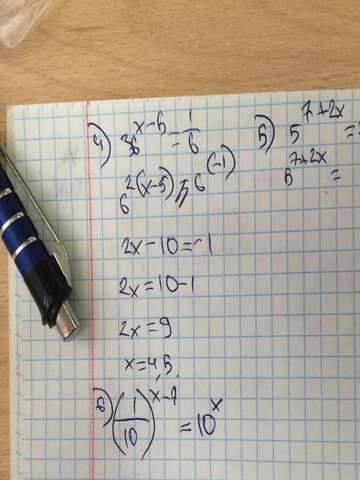 4) 36^{x-5} = 1/6
6^{2(x-5)} = 6^{(-1)}
2x-10=-1
2x=10-1
2x=9
x=4,5.
5) 5^{7+2x} =
5^{7+2x} =
6) (1/10)^{x-4} = 10^{x}